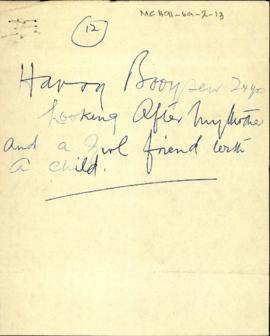 MCH91-49-2-13
12
Harry Booysen 24 yrs
Looking After My Mother
and a Girl friend with
A child.